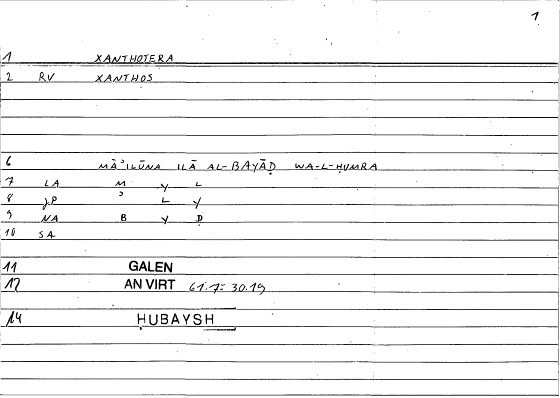 1
1 XANTHOTERA
2 RV XANTHOS
6 MĀʾILŪNA ILĀ AL-BAYĀḌ WA-L-ḤUMRA
7 LA M Y L
8 JP ʾ L Y
9 NA B Y Ḍ
10 SA
11 GALEN
12 AN VIRT 61.7 = 30.19
14 ḤUBAYSH